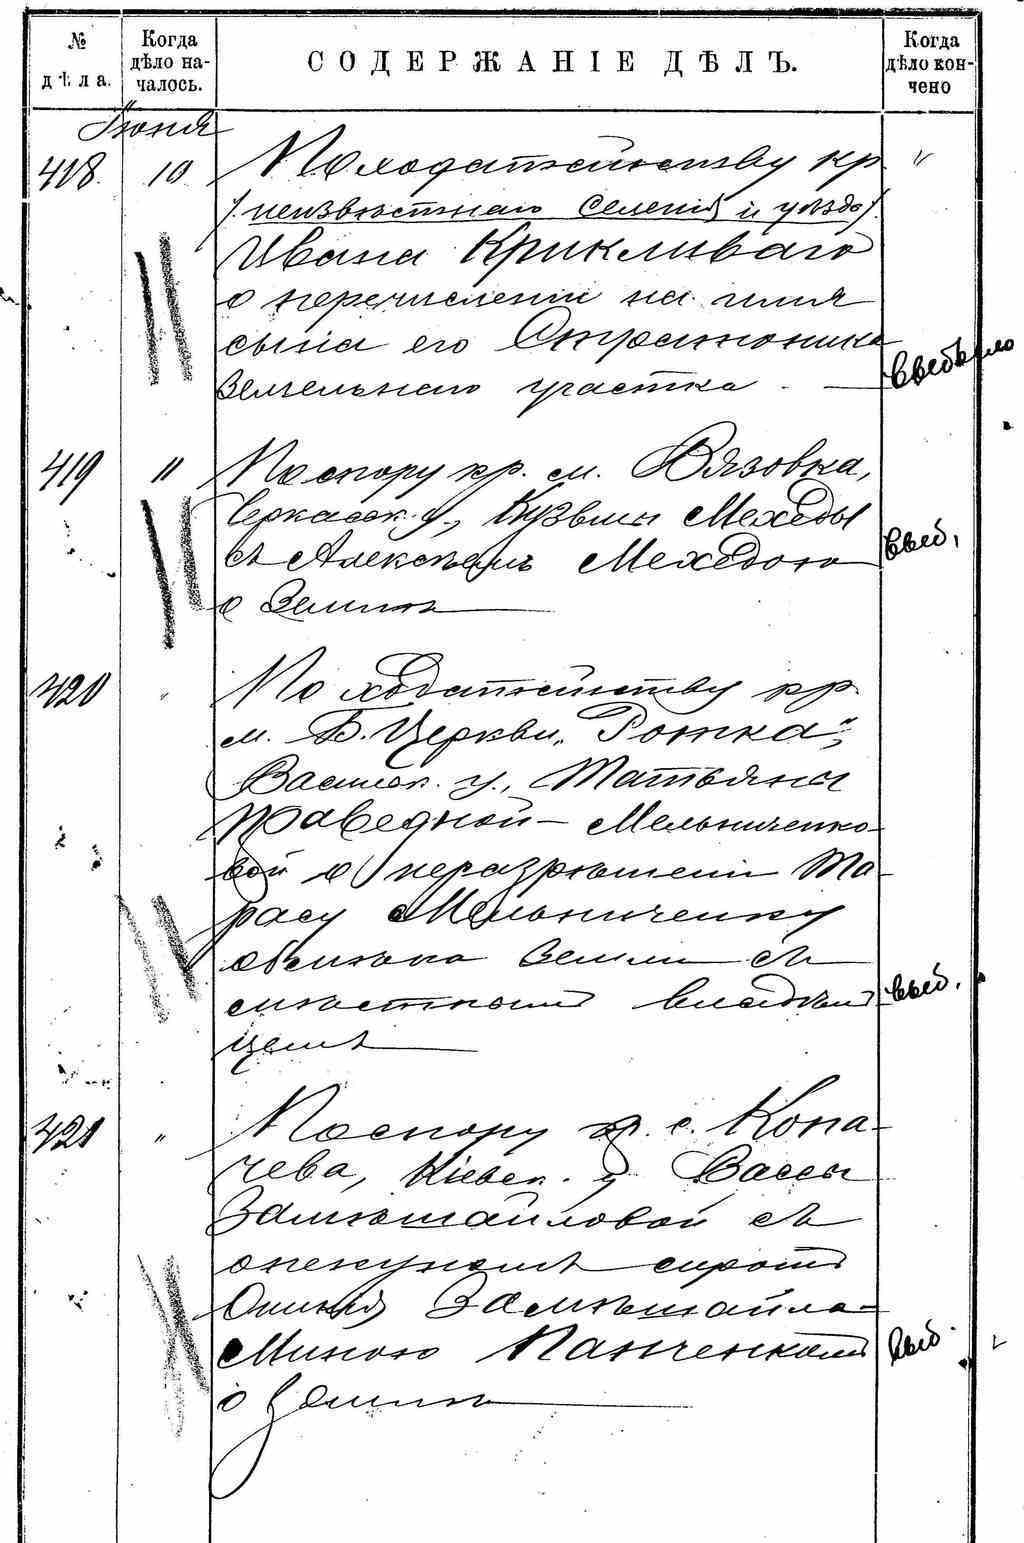 № дѣла.
Когда дѣло на-чалось.
СОДЕРЖАНІЕ ДѢЛЪ.
Когда дѣло кон-чено
Іюня
418. 10 По ходатайству кр. "
/неизвѣстнаго селенія и уѣзда/
Ивана Крикливаго
о перечисленіи на имя
сына его Стратоника
земельнаго участка. — выбыло
419 " По спору кр. м. Вязовка,
Черкасск. у., Кузьмы Мехеды
съ Алексѣемъ Мехедою выб.
о землѣ
420 " По ходатайству кр.
м. Б. Церкви, "Ротка",
Васильк. у., Татьяны
Праведной - Мельниченко-
вой о неразрѣшеніи Та-
расу Мельниченку
обмѣна земли съ
мѣстнымъ владѣль- выб.
цемъ
421 " По спору кр. с. Копа-
чева, Кіевск. у. Вассы
Замѣшайловой съ
опекуномъ сиротъ
Замѣшайла-
Миною Панченкомъ выб.
о землѣ